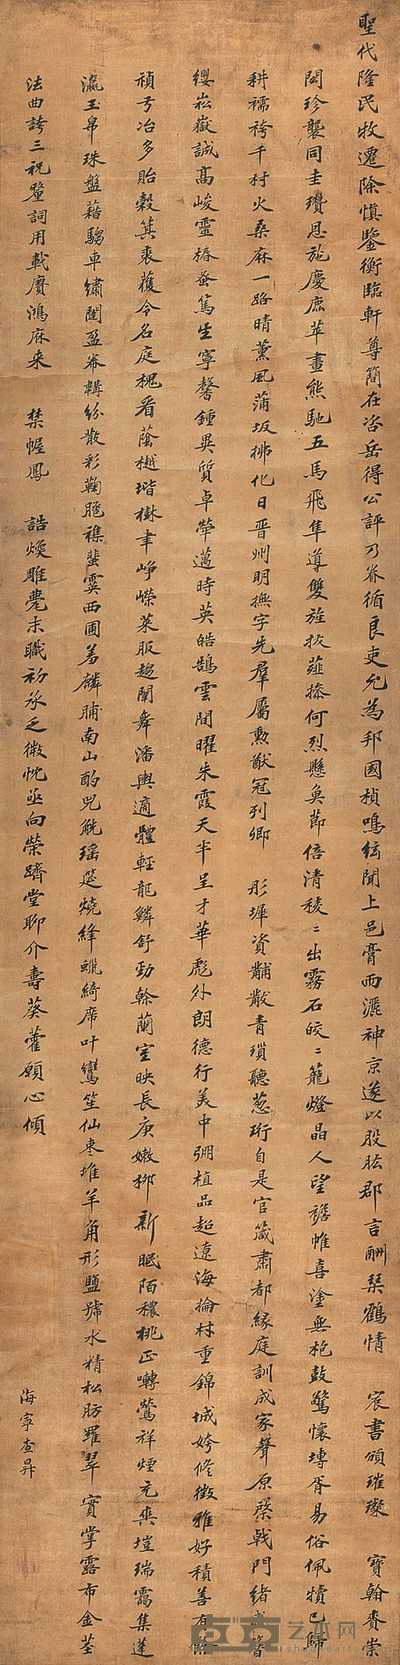 聖代隆民牧遷除慎鑒衡臨軒尊簡在咨岳得公評乃眷循良吏允為邦國楨鳴絃聞上邑膏雨灑神京遂以股肱郡言酬琴鶴情 宸書頒璀璨 寶翰賁崇
閎珍襲同圭瓚恩施慶鹿苹畫熊馳五馬飛隼導雙旌拔薤摻何烈懸魚節倍清稜二出霧石皎二籠燈晶人望襜帷喜塗無枹鼓驚懷塼胥易俗佩犢已歸
耕襦袴千村火桑麻一路晴薰風蒲坂拂化日晉州明撫字先羣屬勲猷冠列卿 彤墀資黼黻青瑣聽蔥珩自是官箴肅都緣庭訓成家聲原棨戟門緒
纓崧嶽誠高峻靈椿蚤篤生寧馨鍾異質卓犖邁時英皓鵠雲間曜朱霞天半呈才華彪外朗德行美中弸植品超遼海掄材重錦城姱修徵雅好積善有
禎弓冶多貽穀箕裘蔑令名庭槐看蔭樾堦樹聿崢嶸萊服趨闌舞潘輿適體輕龍鱗舒勁幹蘭室映長庚嫩柳新眠陌穠桃正囀鶯祥煙充奥塏瑞靄集蓬
瀛玉帛珠盤藉騶車繡闥盈崙輧紛散彩鞠䠆穟蜚霙西圃羞麟脯南山酌兕觥瑶筵燒絳蠟綺席叶鸞笙仙棗堆羊角形鹽號水精松肪羅翠實掌露布金莖
法曲誇三祝蠻詞用載賡鴻麻来 禁幄鳳 誥煥雕甍末職初承乏微忱亟向榮躋堂聊介壽葵藿願心傾
海寧查昇
卓克艺术网